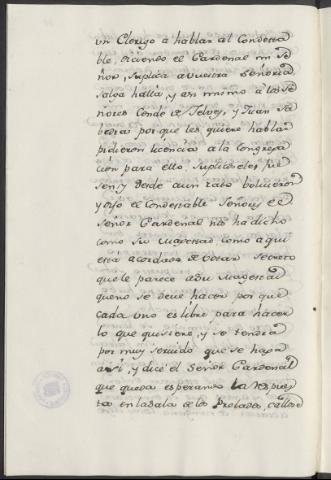 un Clerigo a hablar al Condesta
ble, diciendo el Cardenal mi Se
ñor, suplica a vuestra Señoria
salga hallá, y asi mismo a los Se
ñores Conde de Telves, y Juan Saa
bedra porque les quiere hablar
pidieron licencia a la Congrega
cion para ello, suplicoles fue
sen, y desde a un rato bolvieron
y dijo el Condestable Señores el
Señor Cardenal nos ha dicho
como Su Magestad como aqui
está acordado de votar Secreto
que le parece a Su Magestad
que no se deve hacer por que
cada uno es libre para hacer
lo que quisiere, y se tendria
por muy servido que se haga
asi, y dice el Señor Cardenal
que queda esperando la respues
ta en la Sala de los Prelados,